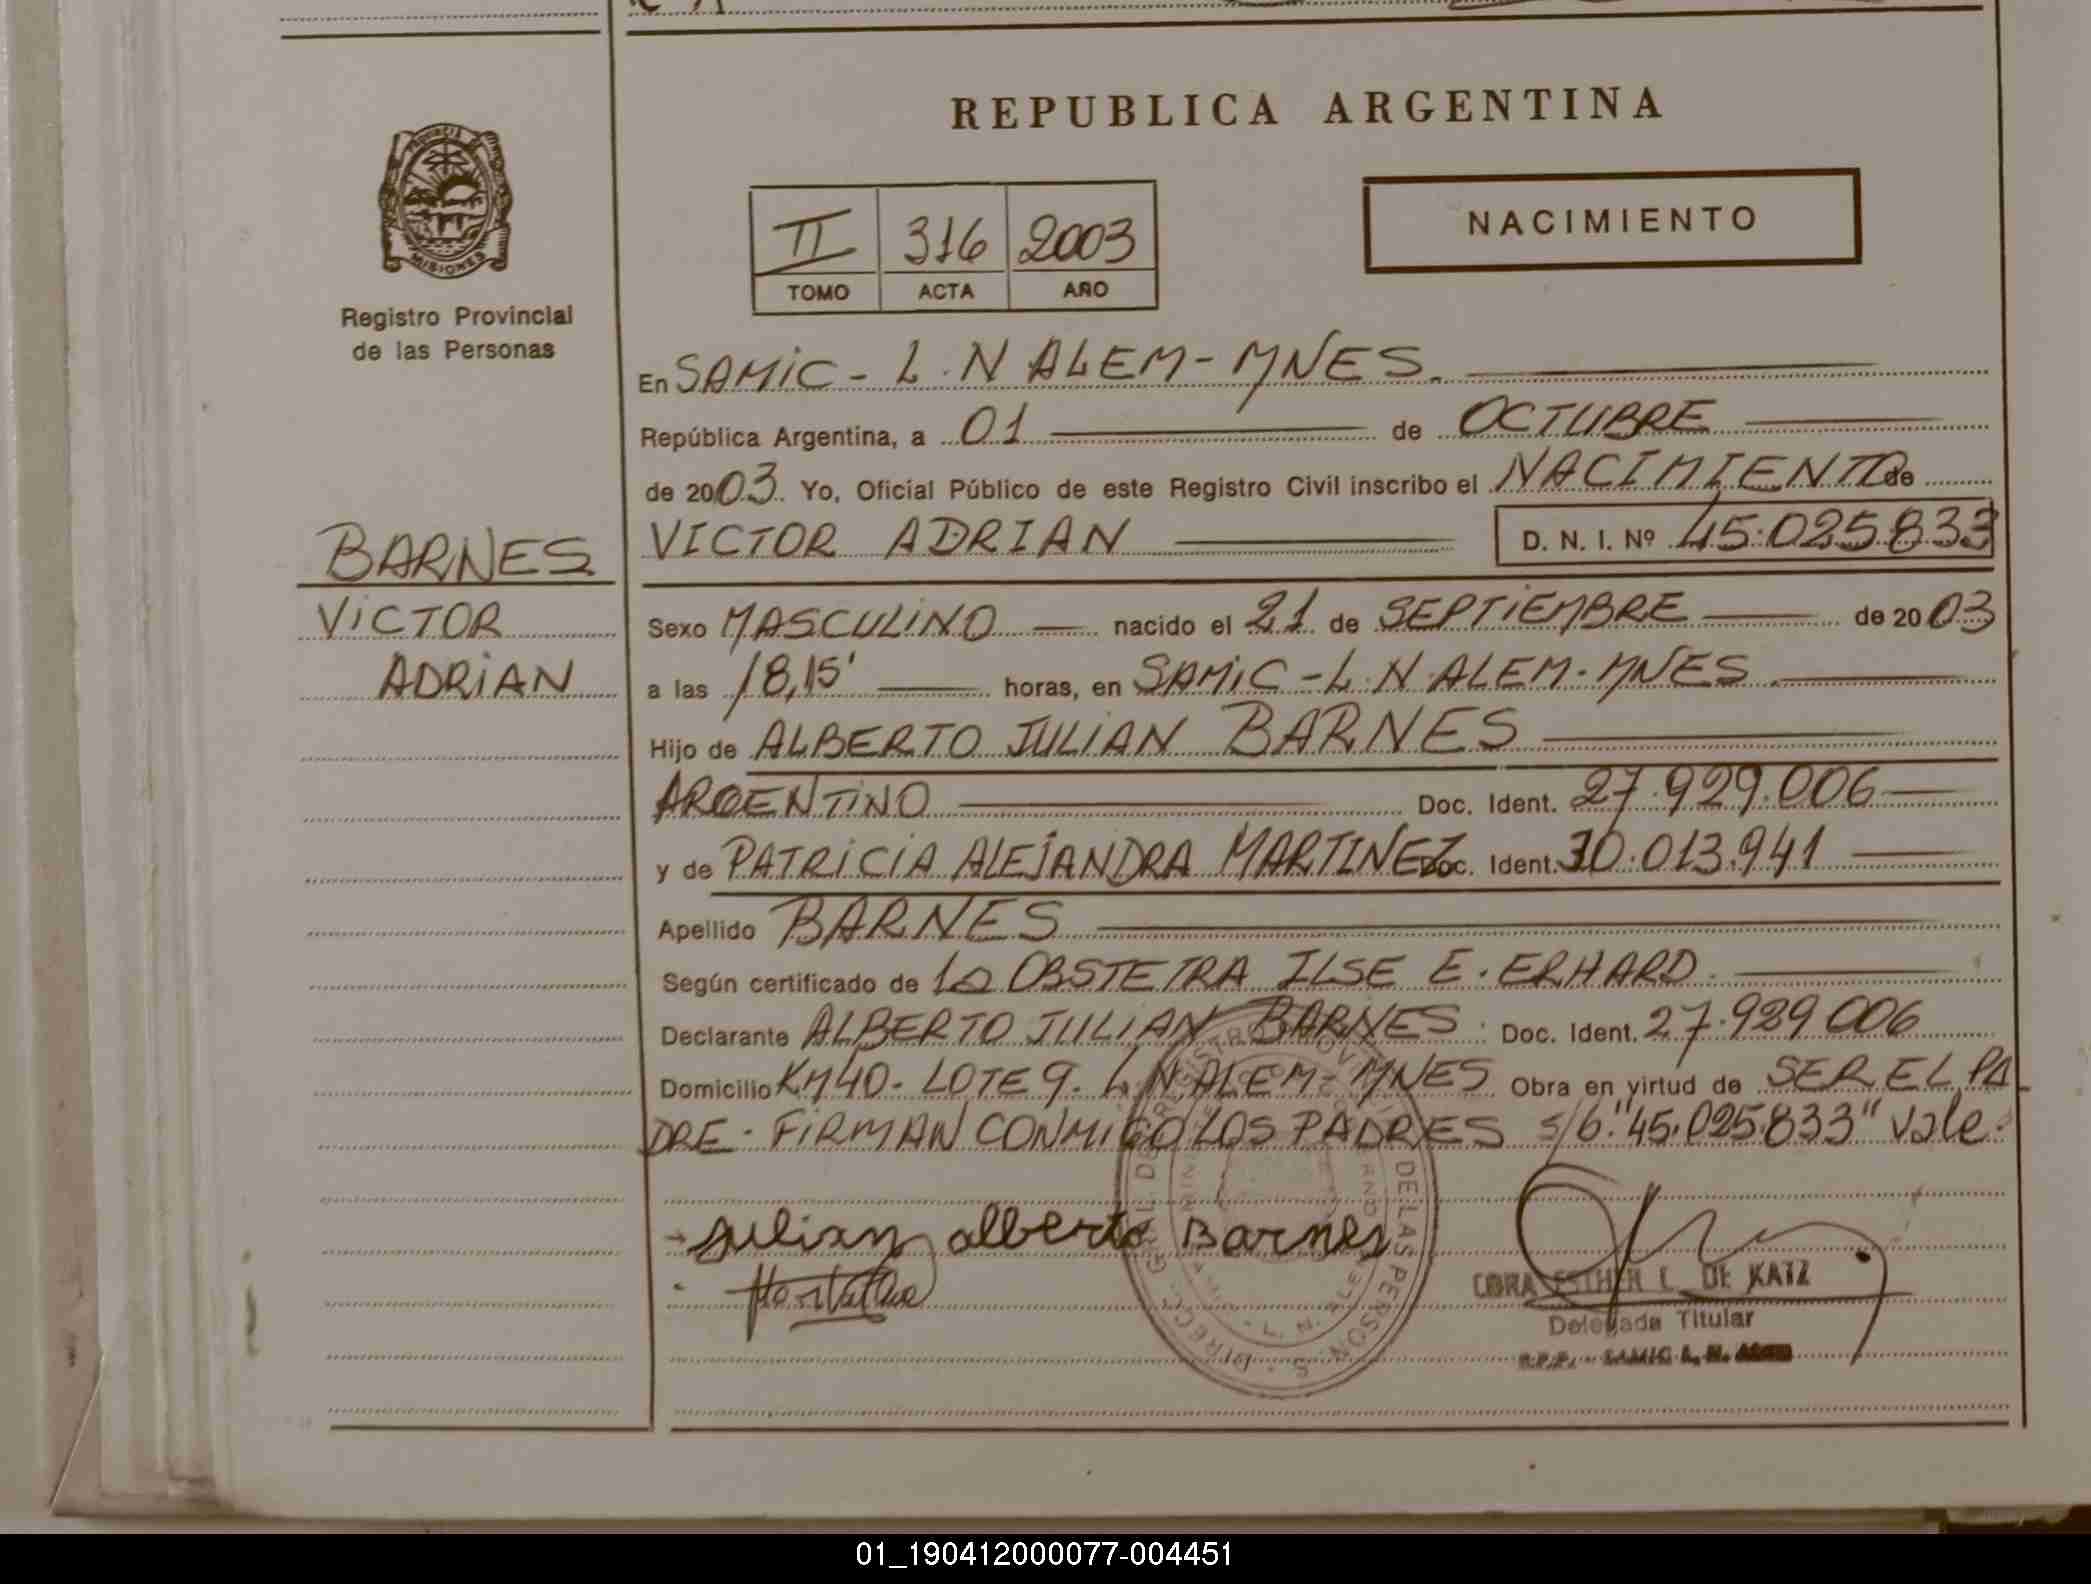 REPUBLICA ARGENTINA
PROVINCIA DE MISIONES
Registro Provincial
de las Personas
II 316 2003
TOMO ACTA AÑO
NACIMIENTO
En SAMIC - L.N ALEM - MNES.
República Argentina, a 01 de OCTUBRE
de 2003. Yo, Oficial Público de este Registro Civil inscribo el NACIMIENTO de
VICTOR ADRIAN D. N. I. Nº 45.025833
BARNES
VICTOR
ADRIAN
Sexo MASCULINO nacido el 21 de SEPTIEMBRE de 2003
a las 18,15' horas, en SAMIC - L.N ALEM - MNES.
Hijo de ALBERTO JULIAN BARNES
ARGENTINO Doc. Ident. 27.929.006
y de PATRICIA ALEJANDRA MARTINEZ Doc. Ident. 30.013.941
Apellido BARNES
Según certificado de la OBSTETRA ILSE E. ERHARD.
Declarante ALBERTO JULIAN BARNES Doc. Ident. 27.929 006
Domicilio KM40 - LOTE 9. L.N ALEM - MNES Obra en virtud de SER EL PA
DRE - FIRMAN CONMIGO LOS PADRES s/b "45.025.833" vale.
Julian alberto Barnes
ESTHER L. DE KATZ
Delegada Titular
R.P.P. - SAMIC L. N. ALEM
01_190412000077-004451